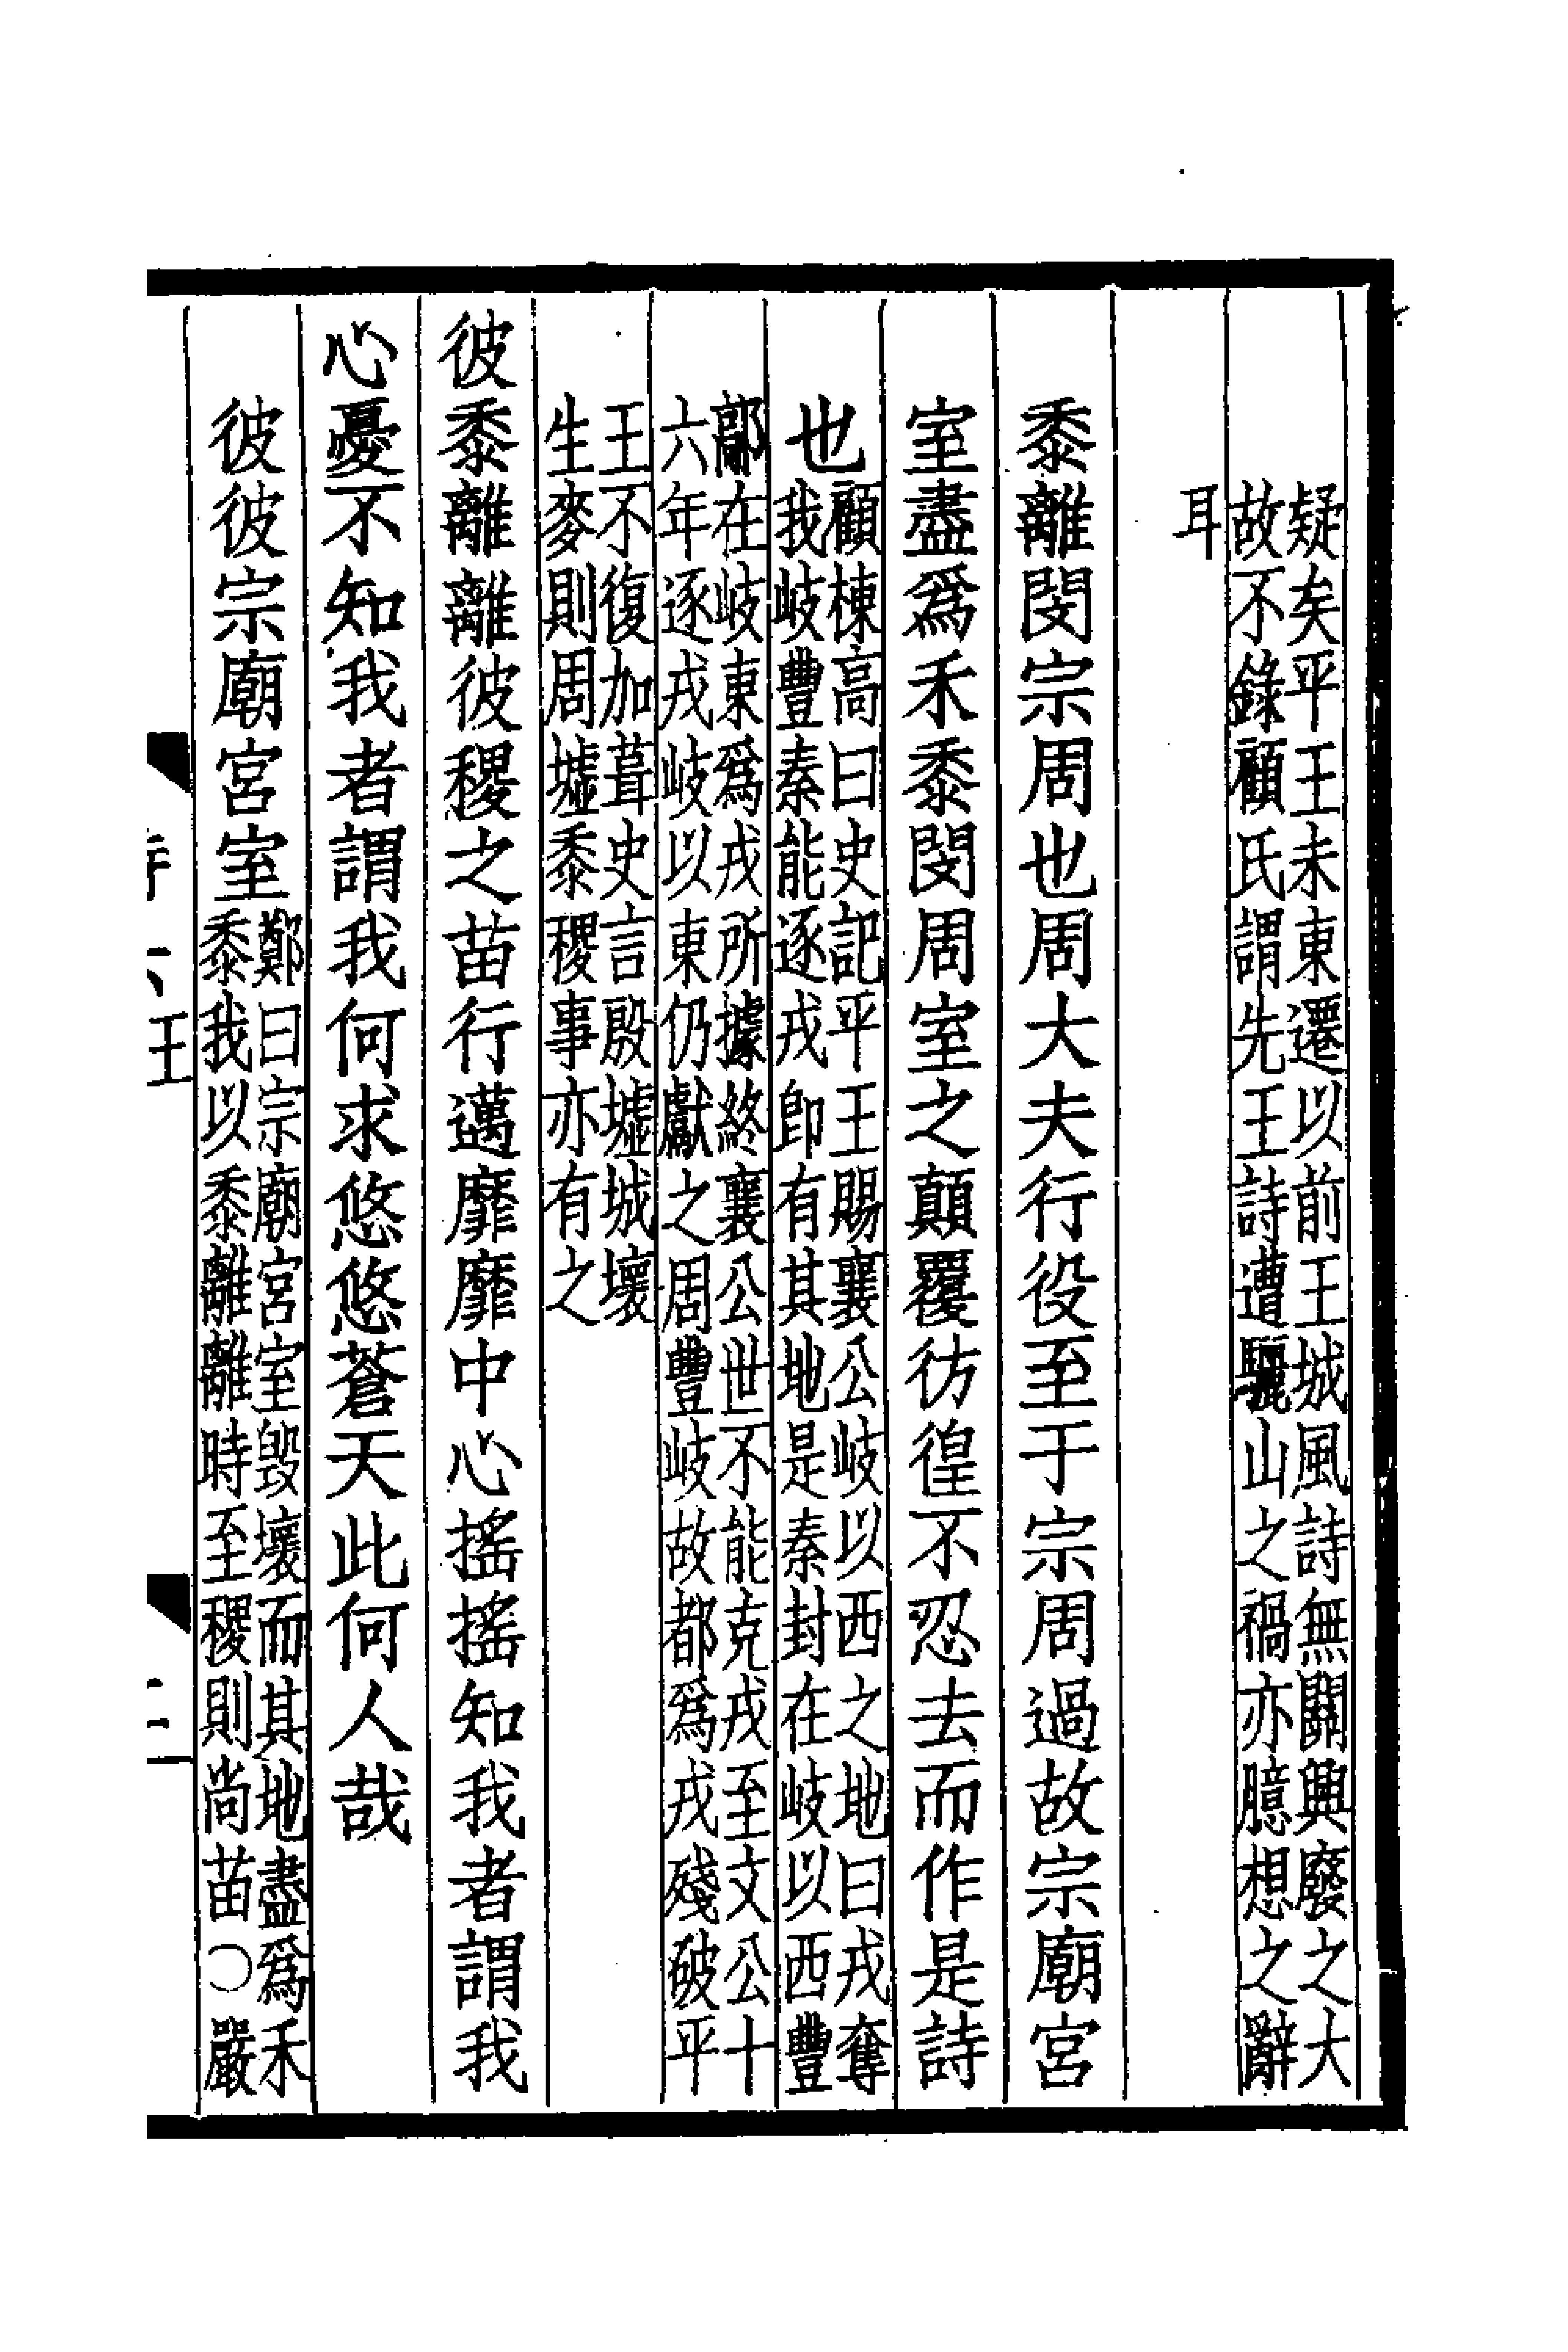 疑矣平王未東遷以前王城風詩無關興廢之大
故不錄顧氏謂先王詩遭驪山之禍亦臆想之辭
耳
黍離閔宗周也周大夫行役至于宗周過故宗廟宮
室盡爲禾黍閔周室之顛覆彷徨不忍去而作是詩
也
顧棟高曰史記平王賜襄公岐以西之地曰戎奪
我岐豐秦能逐戎卽有其地是秦封在岐以西豐
鄗在岐東爲戎所據終襄公世不能克戎至文公十
六年逐戎岐以東仍獻之周豐岐故都爲戎殘破平
王不復加葺史言殷墟城壞
生麥則周墟黍稷事亦有之
彼黍離離彼稷之苗行邁靡靡中心搖搖知我者謂我
心憂不知我者謂我何求悠悠蒼天此何人哉
彼彼宗廟宮室
鄭曰宗廟宮室毀壞而其地盡爲禾
黍我以黍離離時至稷則尚苗○嚴